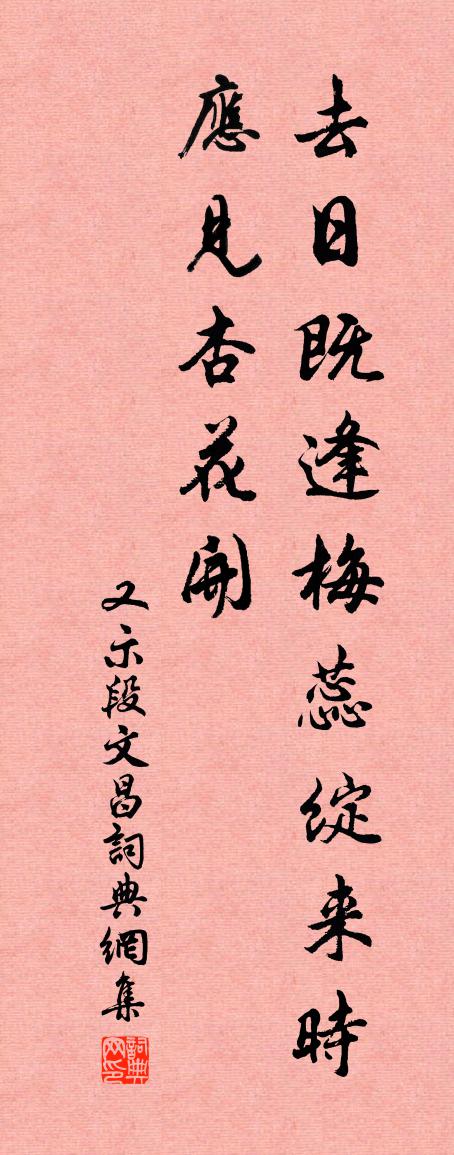 去日既逢梅蕊綻来時
應見杏花開
又示段文昌詞典網集
詞典网印